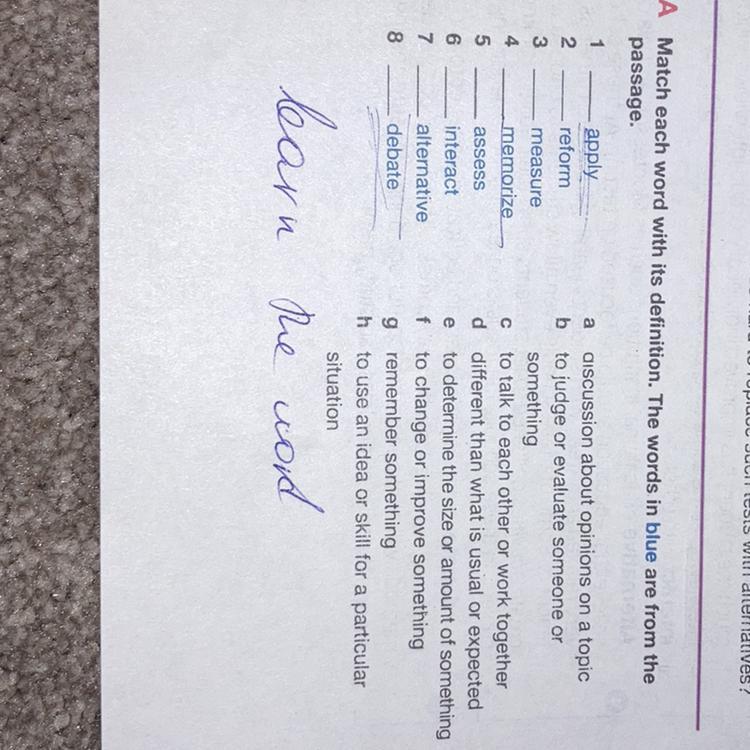 A Match each word with its definition. The words in blue are from the
passage.
1 ___ apply
2 ___ reform
3 ___ measure
4 ___ memorize
5 ___ assess
6 ___ interact
7 ___ alternative
8 ___ debate
a discussion about opinions on a topic
b to judge or evaluate someone or
something
c to talk to each other or work together
d different than what is usual or expected
e to determine the size or amount of something
f to change or improve something
g remember something
h to use an idea or skill for a particular
situation
learn the word